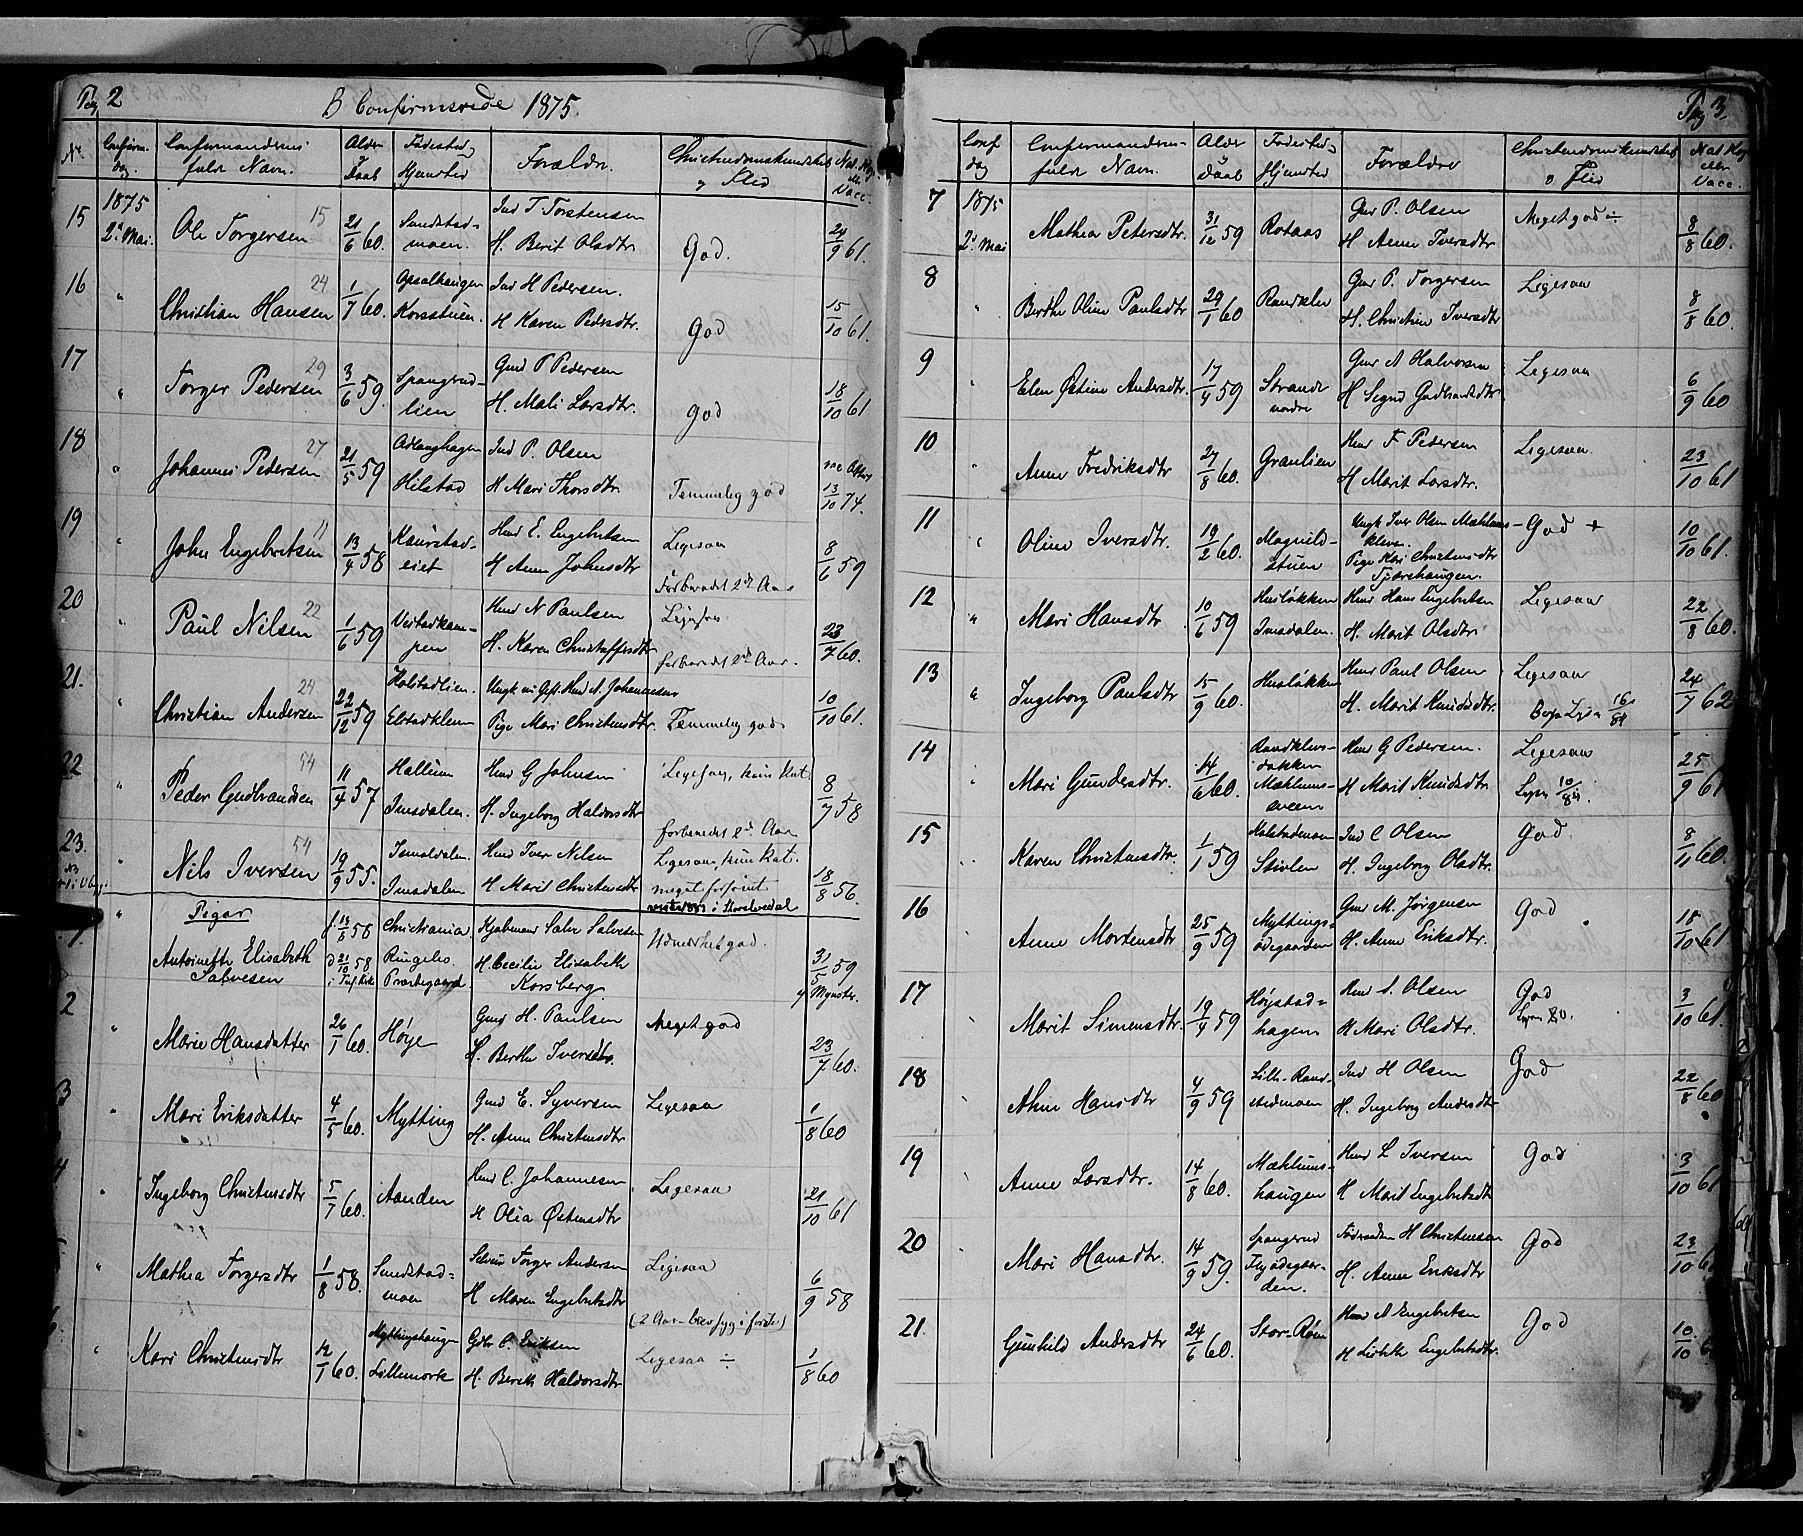 Pag 2
B Confirmerede 1875.
No.
Confirm. dag.
Confirmandernes fulde Navn.
Alder Daab
Fødested og Hjemsted
Forældre
Christendomskundskab og Flid
Nat. Kop. eller Vacc.
15 1875 2. Mai. Ole Torgersen 15 21/6 60. Sundstad-moen. Ind T Torstensen H. Berit Olsdtr God. 24/9 61.
16 " Christian Hansen 24 1/7 60. Opsalhaugen Korsstuen. Ind H Pedersen. H Karen Pedersdtr. God 15/10 61.
17 " Torger Pedersen 29 3/6 59. Spangrud-lien Gmd P Pedersen H. Mali Larsdtr. God 18/10 61
18 " Johannes Pedersen 27 21/5 59 Hilstad Ind P. Olsen H Mari Thorsdtr. Temmelig god 13/10 74.
19 " John Engebretsen 11 13/4 58 Kaurstad-eiet Hmd E. Engebretsen H Anne Johnsdtr Ligesaa Forberedt 2det Aar 8/6 59
20 " Paul Nilsen 22 1/6 59 Veistadkam-pen Hmd N Paulsen H. Karen Christoffersdtr Ligesaa forberedt 2det Aar. 23/7 60.
21. " Christian Andersen 24 22/12 59 Holstadlien. Elstadklem Ungk nu Gift. Hmd A. Johannesen Pige Mari Christensdtr. Temmelig god 10/10 61.
22 " Peder Gudbrandsen 54 11/4 57 Hallum Imsdalen. Hmd G Johnsen H. Ingeborg Haldorsdtr Ligesaa, kun Kat. forberedet 2det Aar 8/7 58
23. " Nils Iversen 54 19/9 55. Imsdalen Hmd Iver Nilsen H Marit Christensdtr Ligesaa, kun Kat. meget forsømt i Storelvedal 18/8 56.
Piger
1. " Antoinette Elisabeth Salvesen f. 13/8 58 d 21/10 58 Christiania. Ringebo Præstegaard Salve Salvesen H. Cecilie Elisabeth Korsberg. Udmærket god. 31/5 59
2 " Marie Hansdatter 26/1 60. Høye Gmd H. Paulsen H. Berthe Iversdtr. Meget god 23/7 60.
3 " Mari Eriksdatter 4/5 60. Mytting Gmd E. Syversen H. Anne Christensdtr Ligesaa 1/8 60
4 " Ingeborg Christensdtr 5/7 60. Aanden Hmd C. Johannesen H Olia Østensdtr Ligesaa 21/10 61
5 " Mathea Torgersdtr 1/8 58. Sundstad-moen Torger Andersen H Maren Engebretsdtr Ligesaa 6/9 58
6 " Kari Christensdtr 12/1 60. Myttingshaugen Lillemork C. Eriksen H. Berith Haldorsdtr Ligesaa ÷ 1/8 60
Pag 3.
Conf dag
Confirmandernes fulde Navn.
Alder Daab
Fødested- Hjemsted
Forældre
Christendomskundskab og Flid
Nat Kop eller Vacc.
7 1875 2. Mai Mathea Petersdtr. 31/12 59 Rotaas Gmd P. Olsen H Anne Iversdtr. Meget god ÷ 8/8 60.
8 " Berthe Oline Paulsdtr 29/1 60 Randalen Gmd P. Torgersen H. Christine Iversdtr Ligesaa 8/8 60.
9 " Elen Østine Andersdtr. 17/4 59 Strande nordre Gmd A Halvorsen H Sigrid Gudbrandsdtr Ligesaa 6/9 60
10 " Anne Fredriksdtr 27/8 60. Granlien Hmd F Pedersen H Marit Larsdtr. Ligesaa 23/10 61
11 " Oline Iversdtr. 19/2 60. Magnild-stuen Ungk Iver Olsen Mæhlums-kleven. Pige Kari Christensdtr Tjærehaugen. God + 10/10 61.
12 " Mari Hansdtr 10/6 59 Husløkken Imsdalen. Hmd Hans Engebretsen H. Marit Olsdtr Ligesaa 22/8 60.
13 " Ingeborg Paulsdtr 15/9 60. Husløkken Hmd Paul Olsen H. Marit Knudsdtr. Ligesaa 24/7 62
14 Mari Gundersdtr 14/6 60. Mæhlums-sveen Hmd G Pedersen. H Marit Knudsdtr Ligesaa 25/9 61
15 " Karen Christensdtr. 1/1 59 Kolstadmoen Stivlen Ind C Olsen H. Ingeborg Olsdtr. God. 8/11 60.
16 Anne Mortensdtr 25/9 59 Myttings-ødegaarden Gmd M. Jørgensen H. Anne Eriksdtr. God 18/10 61
17 Marit Simensdtr 19/4 59 Høystad-hagen Hmd S. Olsen H Mari Olsdtr. God 3/10 61.
18 Hansdtr 4/9 59 Lille-Rand-stadmoen Ind H Olsen H. Ingeborg Andersdtr God 22/8 60
19 Anne Larsdtr. 14/8 60. Mæhlums-haugen Hmd L Iversen H Marit Engebretsdtr God 3/10 61
20 Mari Hansdtr. 14/9 59. Spangrud H Christensen H. Anne Eriksdtr God 23/10 61
21. Gunhild Andersdtr 24/6 60. Stor-Røen Hmd A Engebretsen H Lisbeth Engebretsdtr. God 10/10